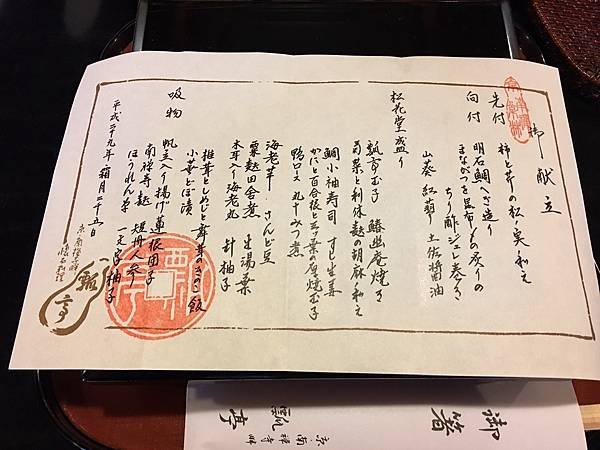 御献立
先付 柿と芹の松の実和え
向付 明石鯛へぎ造り
まながつを昆布〆の炙りの
ちり酢ジュレ巻き
山葵 紅蓼 土佐醤油
松花堂盛り
瓢亭玉子 鰆幽庵焼き
菊菜と利休麩の胡麻和え
鯛小袖寿司 すじ生姜
かにと百合根と三ツ葉の厚焼玉子
鴨ロース 丸十みつ煮
海老芋 さんど豆
粟麩田舎煮 生湯葉
木耳入り海老丸 針柚子
椎茸としめじと舞茸のきのこ飯
小蕪とぼ漬
吸物 帆立入り揚げ蓮根団子
南禅寺麩 短冊人参
ほうれん草 一文字柚子
平成二十九年 霜月二十五日
京・南禅寺畔
懐石料理
瓢亭
御箸
京・南禅寺畔
瓢亭